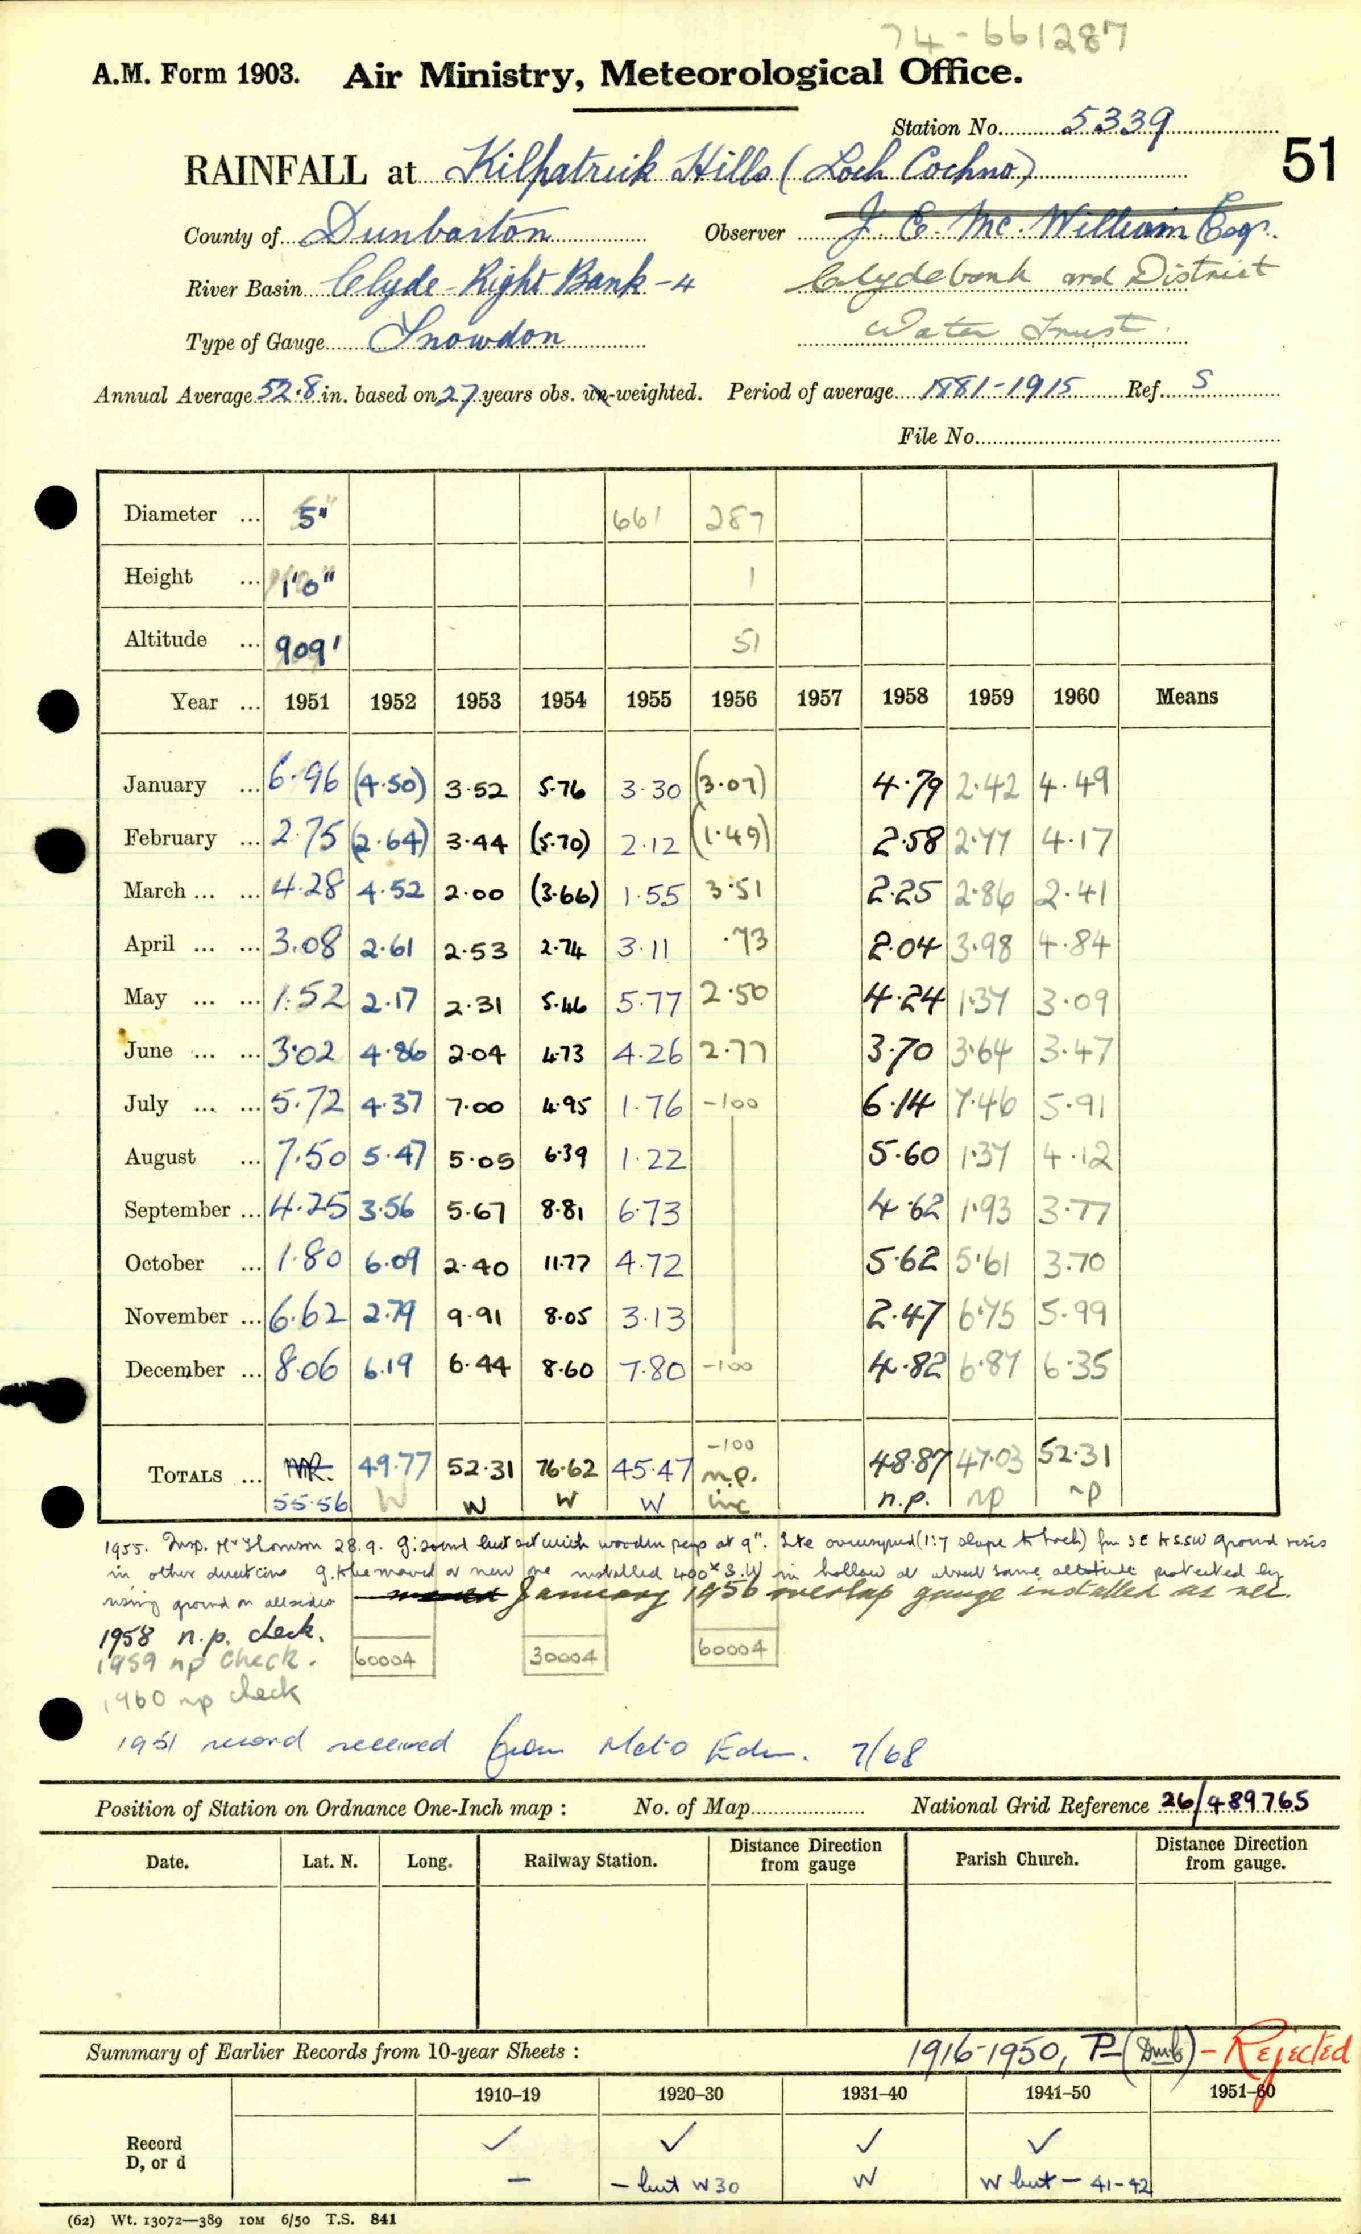 74-661287
A.M. Form 1903. Air Ministry, Meteorological Office.
Station No. 5339
RAINFALL at Kilpatrick Hills (Loch Cochno) 51
County of Dunbarton Observer J. E. Mc. William Esqr.
River Basin Clyde - Right Bank - 4 Clydebank and District
Type of Gauge Snowdon Water Trust.
Annual Average 52.8 in. based on 27 years obs. un-weighted. Period of average 1881-1915 Ref. S
File No.
Diameter ... 5" 661 287
Height ... 1'0" 1
Altitude ... 909' 51
Year ... 1951 1952 1953 1954 1955 1956 1957 1958 1959 1960 Means
January ... 6.96 (4.50) 3.52 5.76 3.30 (3.07) 4.79 2.42 4.49
February ... 2.75 (2.64) 3.44 (5.70) 2.12 (1.49) 2.58 2.77 4.17
March ... ... 4.28 4.52 2.00 (3.66) 1.55 3.51 2.25 2.86 2.41
April ... ... 3.08 2.61 2.53 2.74 3.11 .73 2.04 3.98 4.84
May ... ... 1.52 2.17 2.31 5.46 5.77 2.50 4.24 1.37 3.09
June ... ... 3.02 4.86 2.04 4.73 4.26 2.77 3.70 3.64 3.47
July ... ... 5.72 4.37 7.00 4.95 1.76 -100 6.14 7.46 5.91
August ... 7.50 5.47 5.05 6.39 1.22 5.60 1.37 4.12
September ... 4.25 3.56 5.67 8.81 6.73 4.62 1.93 3.77
October ... 1.80 6.09 2.40 11.77 4.72 5.62 5.61 3.70
November ... 6.62 2.79 9.91 8.05 3.13 2.47 6.75 5.99
December ... 8.06 6.19 6.44 8.60 7.80 -100 4.82 6.87 6.35
-100
TOTALS ... NR. 49.77 52.31 76.62 45.47 n.p. 48.87 47.03 52.31
55.56 W W W W inc n.p. np np
1955. Insp. Mr Thomson 28.9. G: sound but set with wooden pegs at 9". Site overexposed (1:7 slope to loch) fm SE to SSW ground rises
in other directions g. to be moved or new one installed 400x S.W in hollow at about same altitude protected by
rising ground on all sides January 1956 overlap gauge installed as rec.
1958 n.p. check.
1959 np check. 60004 30004 60004
1960 np check
1951 record received from Meto Edin. 7/68
Position of Station on Ordnance One-Inch map : No. of Map National Grid Reference 26/489765
Date. Lat. N. Long. Railway Station. Distance Direction from gauge Parish Church. Distance Direction from gauge.
Summary of Earlier Records from 10-year Sheets : 1916-1950, P- (Dmb) - Rejected
1910-19 1920-30 1931-40 1941-50 1951-60
Record ✓ ✓ ✓ ✓
D, or d - - but W30 W W but - 41-42
(62) Wt. 13072—389 10M 6/50 T.S. 841